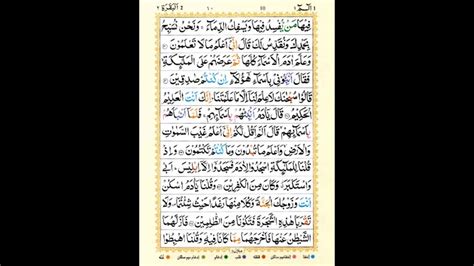 الٓمّٓ ١ ١٠ اَلْبَقَرَة ٢
فِيْهَا مَنْ يُّفْسِدُ فِيْهَا وَيَسْفِكُ الدِّمَآءَ ۚ وَنَحْنُ نُسَبِّحُ
بِحَمْدِكَ وَنُقَدِّسُ لَكَ ؕ قَالَ اِنِّيْٓ اَعْلَمُ مَا لَا تَعْلَمُوْنَ
وَعَلَّمَ اٰدَمَ الْاَسْمَآءَ كُلَّهَا ثُمَّ عَرَضَهُمْ عَلَى الْمَلٰٓئِكَةِ
فَقَالَ اَنْۢبِـُٔوْنِيْ بِاَسْمَآءِ هٰٓؤُلَآءِ اِنْ كُنْتُمْ صٰدِقِيْنَ
قَالُوْا سُبْحٰنَكَ لَا عِلْمَ لَنَآ اِلَّا مَا عَلَّمْتَنَا ؕ اِنَّكَ اَنْتَ الْعَلِيْمُ
الْحَكِيْمُ قَالَ يٰٓاٰدَمُ اَنْۢبِئْهُمْ بِاَسْمَآئِهِمْ ۚ فَلَمَّآ اَنْۢبَاَهُمْ
بِاَسْمَآئِهِمْ ۙ قَالَ اَلَمْ اَقُلْ لَّكُمْ اِنِّيْٓ اَعْلَمُ غَيْبَ السَّمٰوٰتِ
وَالْاَرْضِ ۙ وَاَعْلَمُ مَا تُبْدُوْنَ وَمَا كُنْتُمْ تَكْتُمُوْنَ وَاِذْ
قُلْنَا لِلْمَلٰٓئِكَةِ اسْجُدُوْا لِاٰدَمَ فَسَجَدُوْٓا اِلَّآ اِبْلِيْسَ ؕ اَبٰى
وَاسْتَكْبَرَ ٭ وَكَانَ مِنَ الْكٰفِرِيْنَ وَقُلْنَا يٰٓاٰدَمُ اسْكُنْ
اَنْتَ وَزَوْجُكَ الْجَنَّةَ وَكُلَا مِنْهَا رَغَدًا حَيْثُ شِئْتُمَا ۪ وَلَا
تَقْرَبَا هٰذِهِ الشَّجَرَةَ فَتَكُوْنَا مِنَ الظّٰلِمِيْنَ فَاَزَلَّهُمَا
الشَّيْطٰنُ عَنْهَا فَاَخْرَجَهُمَا مِمَّا كَانَا فِيْهِ ۪ وَقُلْنَا اهْبِطُوْا